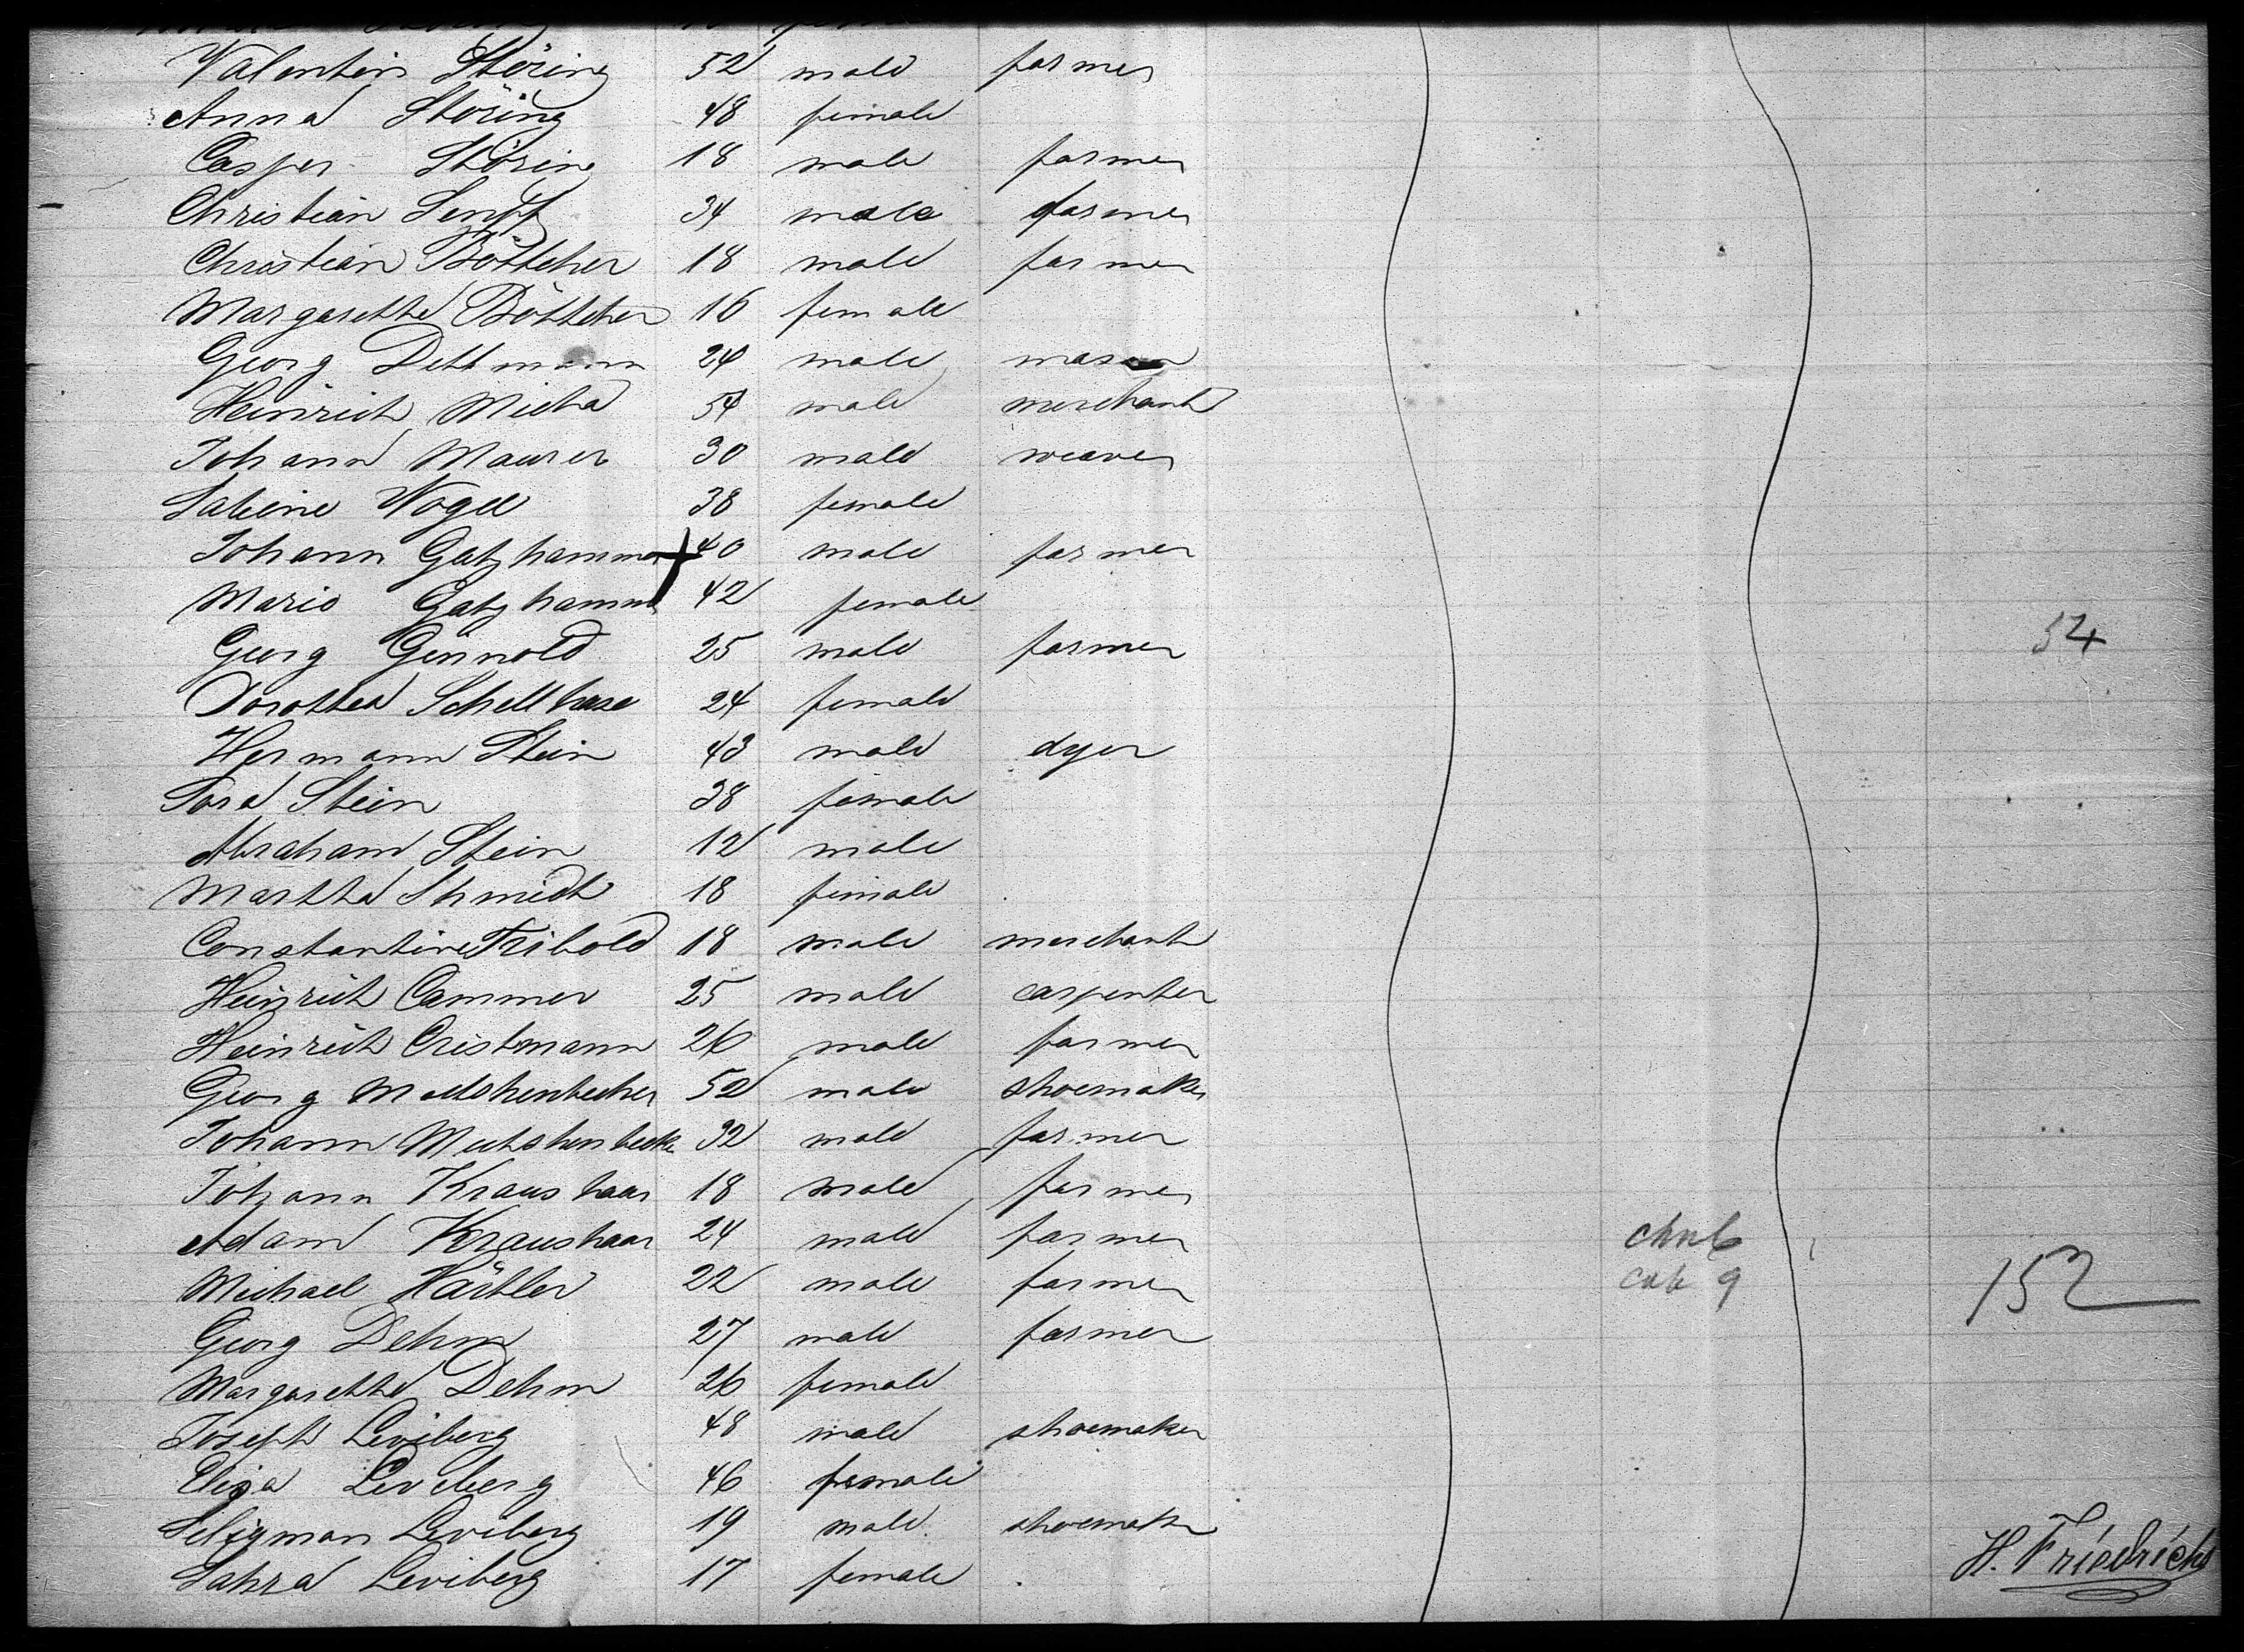 Valentin Störing 52 male farmer
Anna Störing 48 female
Casper Störing 18 male farmer
Christian Senff 34 male farmer
Christian Böttcher 18 male farmer
Margarethe Böttcher 16 female
Georg Dettmann 24 male mason
Heinrich Micha 54 male merchant
Johann Maurer 30 male weaver
Sabine Vogel 38 female
Johann Gatzhammer 40 male farmer
Marie Gatzhammer 42 female
Georg Ginnold 25 male farmer 54
Dorothea Schellhase 24 female
Hermann Stein 43 male dyer
Sara Stein 38 female
Abraham Stein 12 male
Martha Shmidt 18 female
Constantine Tribold 18 male merchant
Heinrich Cammer 25 male carpenter
Heinrich Cristmann 26 male farmer
Georg 52 male shoemaker
Johann 32 male farmer
Johann Kraushaar 18 male farmer
Adam Kraushaar 24 male farmer
Michael 22 male farmer 9 152
Georg Dehm 27 male farmer
Margarethe Dehm 26 female
Joseph Leviberg 48 male shoemaker
Eliza Leviberg 46 female
Seligman Leviberg 19 male shoemaker
Sahra Leviberg 17 female
H. Friedrichs